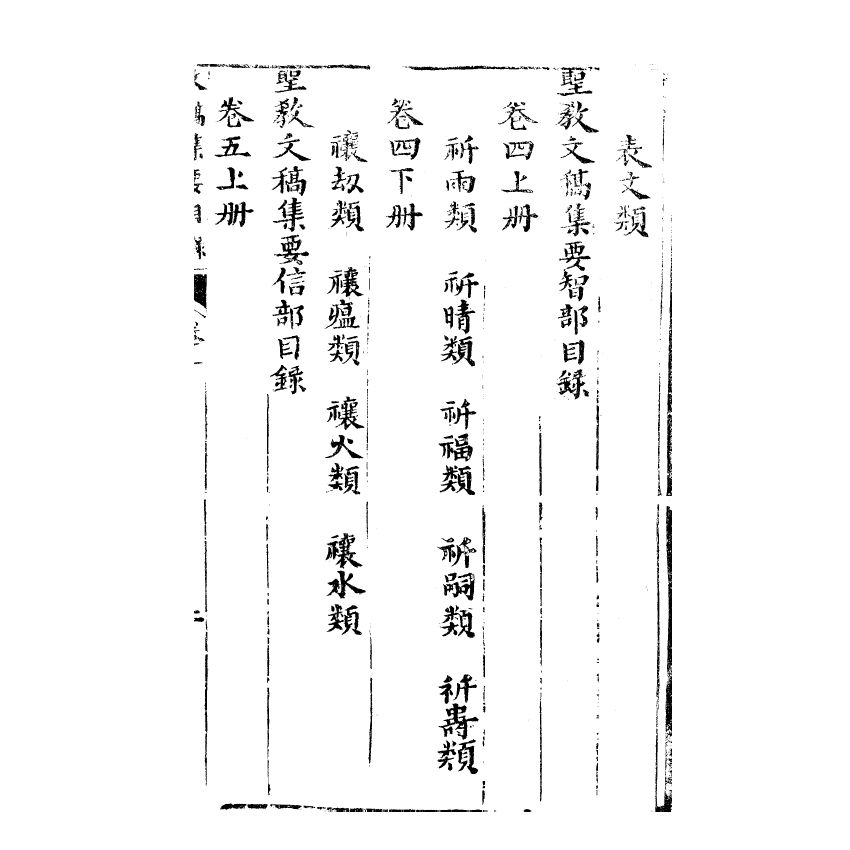 表文類
聖教文稿集要智部目錄
卷四上册
祈雨類　祈晴類　祈福類　祈嗣類　祈壽類
卷四下册
禳劫類　禳瘟類　禳火類　禳水類
聖教文稿集要信部目錄
卷五上册
文稿集要目錄　卷一　二